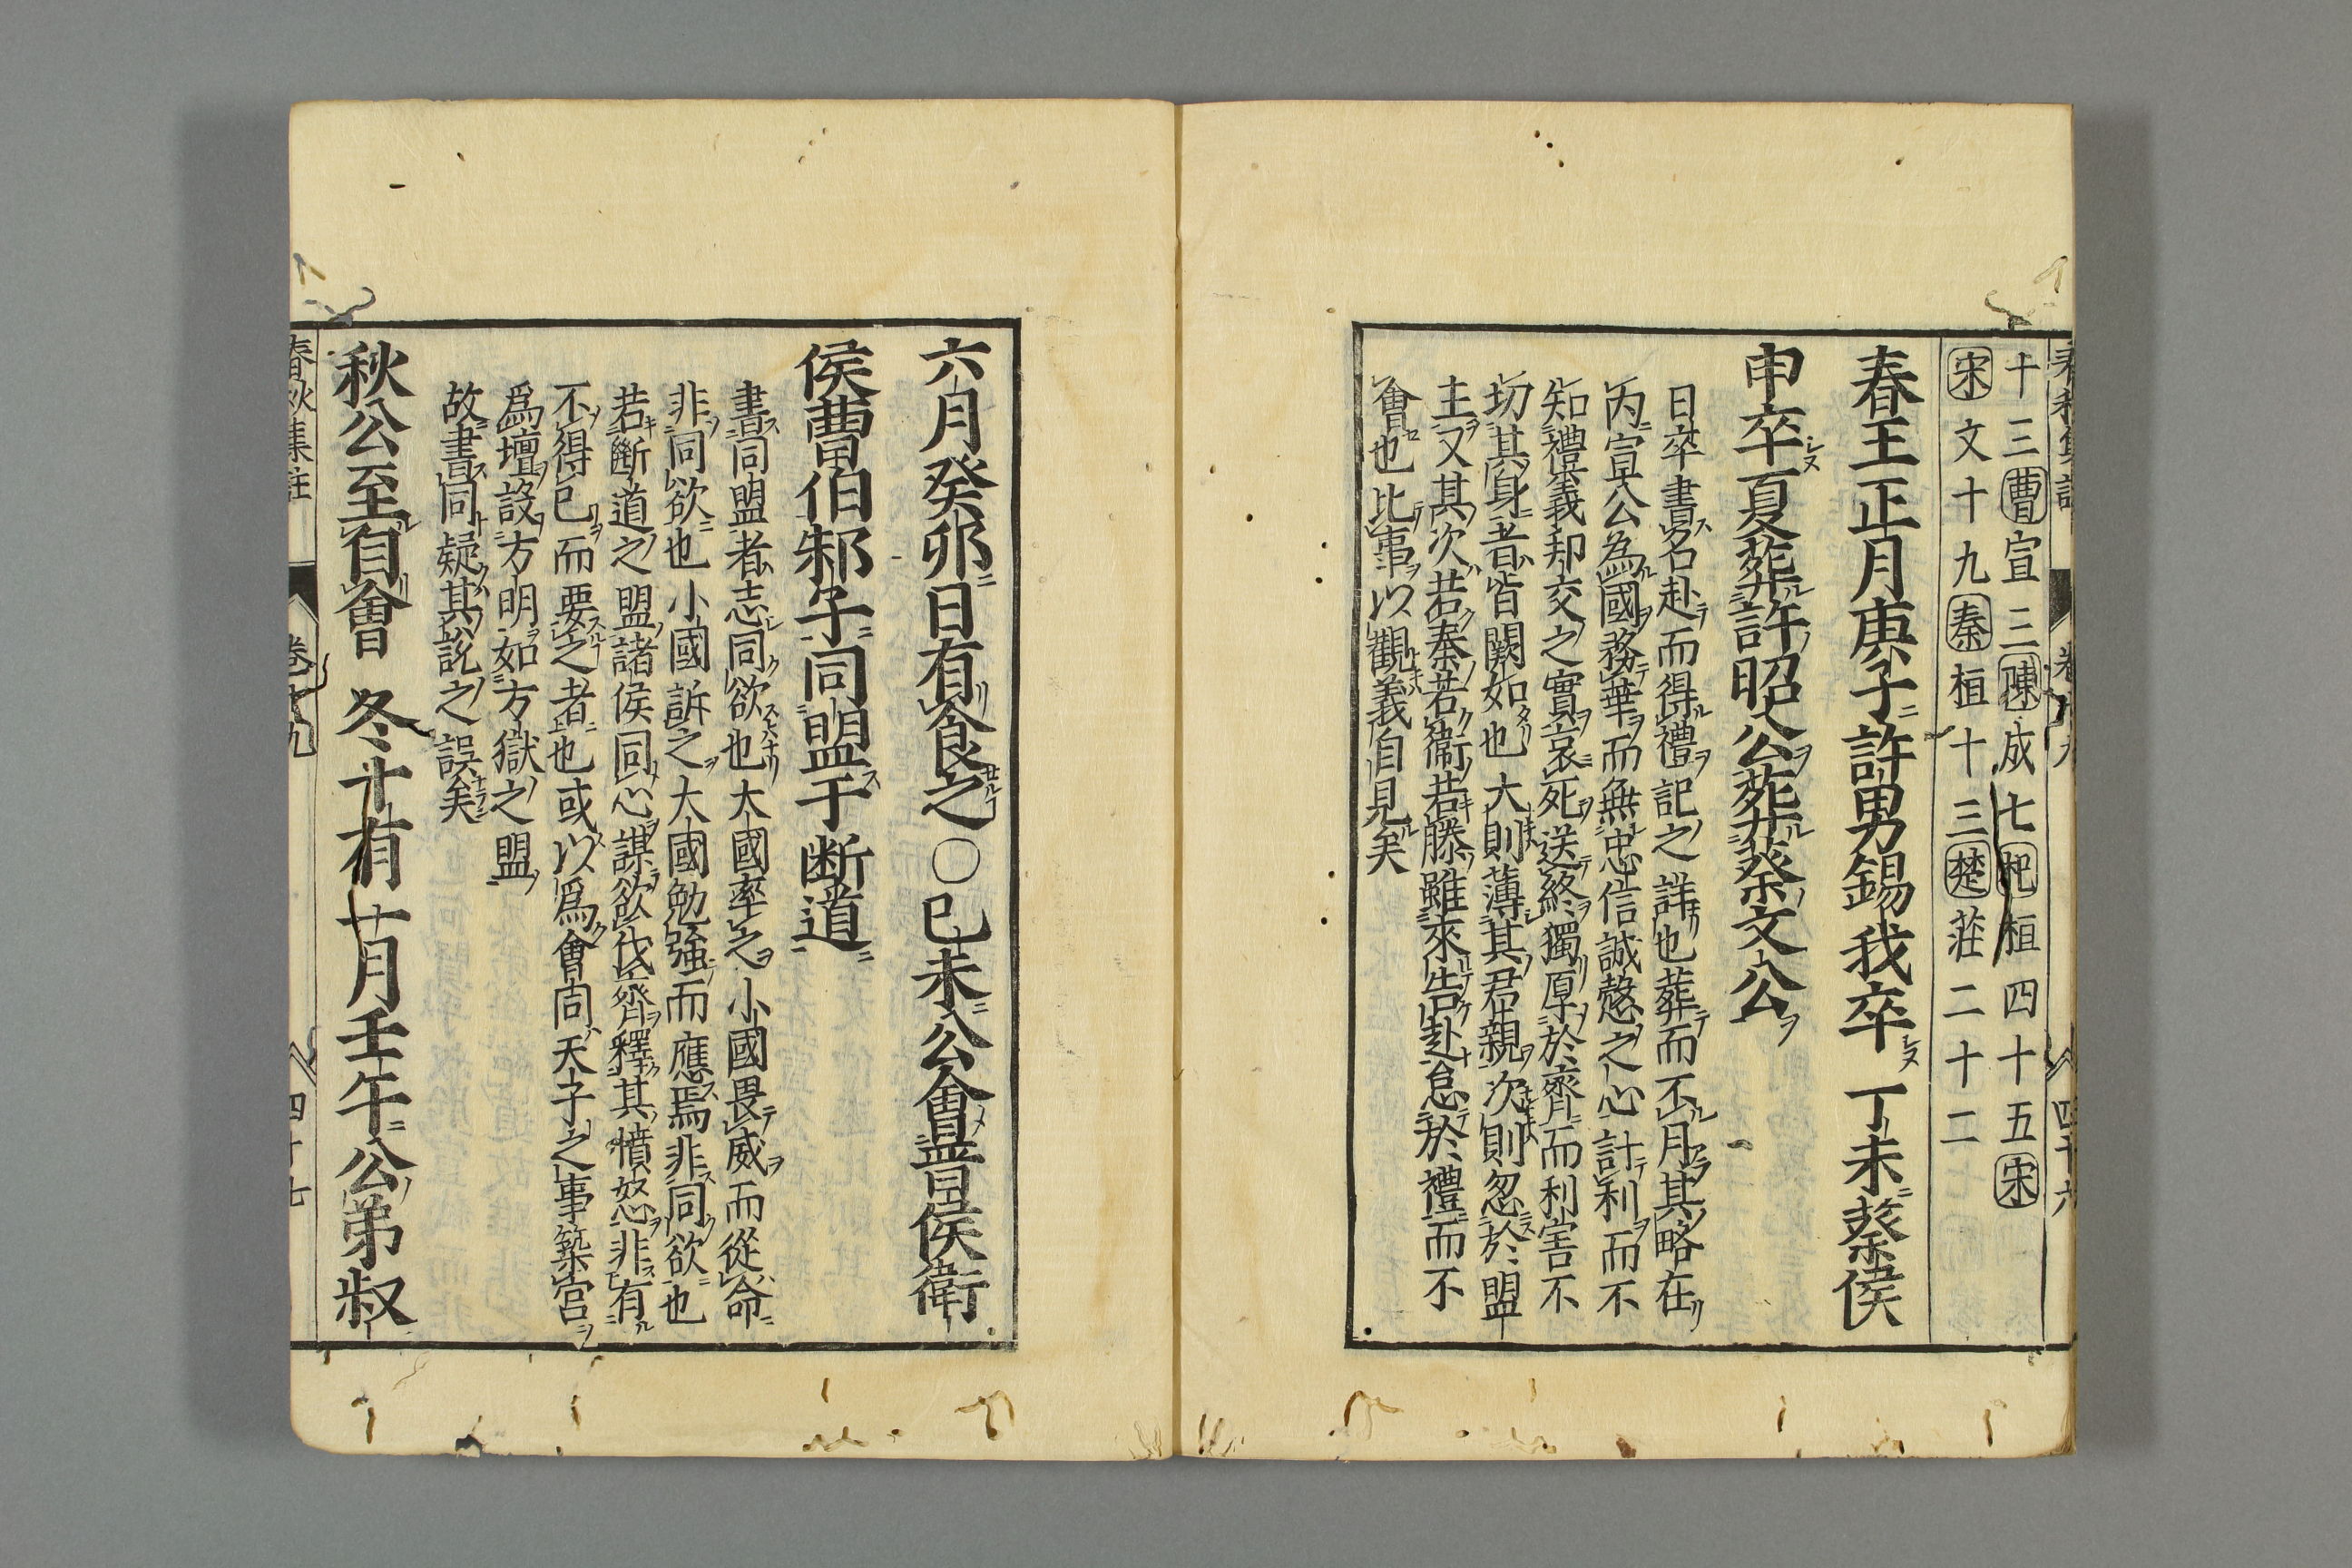 十三曹宣三陳成七杞桓四十五宋
宋文十九秦桓十三楚莊二十二
春王正月庚子許男錫我卒丁未蔡侯
申卒夏葬許昭公葬蔡文公
日卒書名赴而得禮記之詳也葬而不月其略在
内宣公為國務華而無忠信誠慤之心計利而不
知禮義邦交之實哀死送終獨厚於齊而利害不
切其身者皆闕如也大則薄其君親次則忽於盟
主又其次若秦若衞若滕雖來告赴怠於禮而不
會也比事以觀義自見矣
六月癸卯日有食之○己未公會晉侯衛
侯曹伯邾子同盟于断道
書同盟者志同欲也大國率之小國畏威而從命
非同欲也小國訴之大國勉強而應焉非同欲也
若斷道之盟諸侯同心謀欲伐齊釋其憤怒非有
不得已而要之者也或以爲會同天子之事築宫
爲壇設方明如方嶽之盟
故書同疑其說之誤矣
秋公至自會 冬十有一月壬午公弟叔
春秋集註 卷十九 四十七